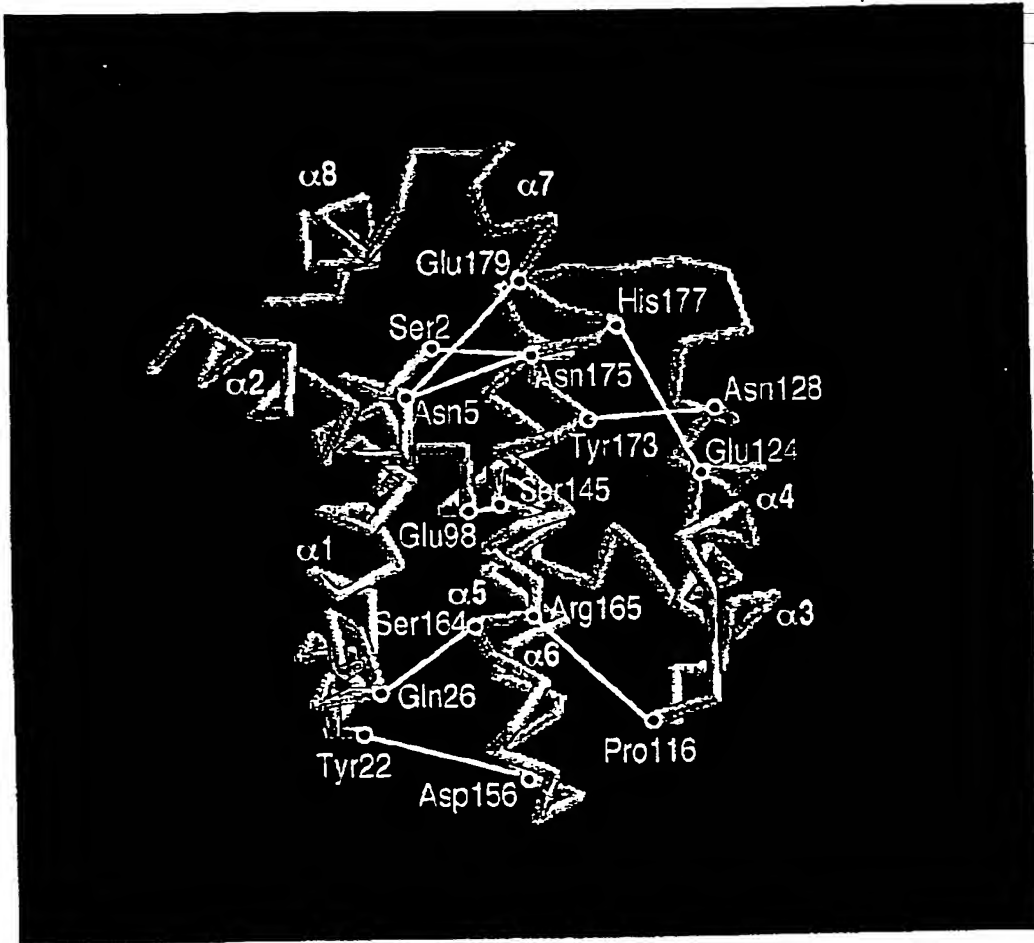 α8
α7
Glu179
His177
Ser2
Asn175
α2
Asn5
Asn128
Tyr173
Glu124
Ser145
α4
Glu98
α1
α5
Ser164
Arg165
α3
α6
Gln26
Pro116
Tyr22
Asp156